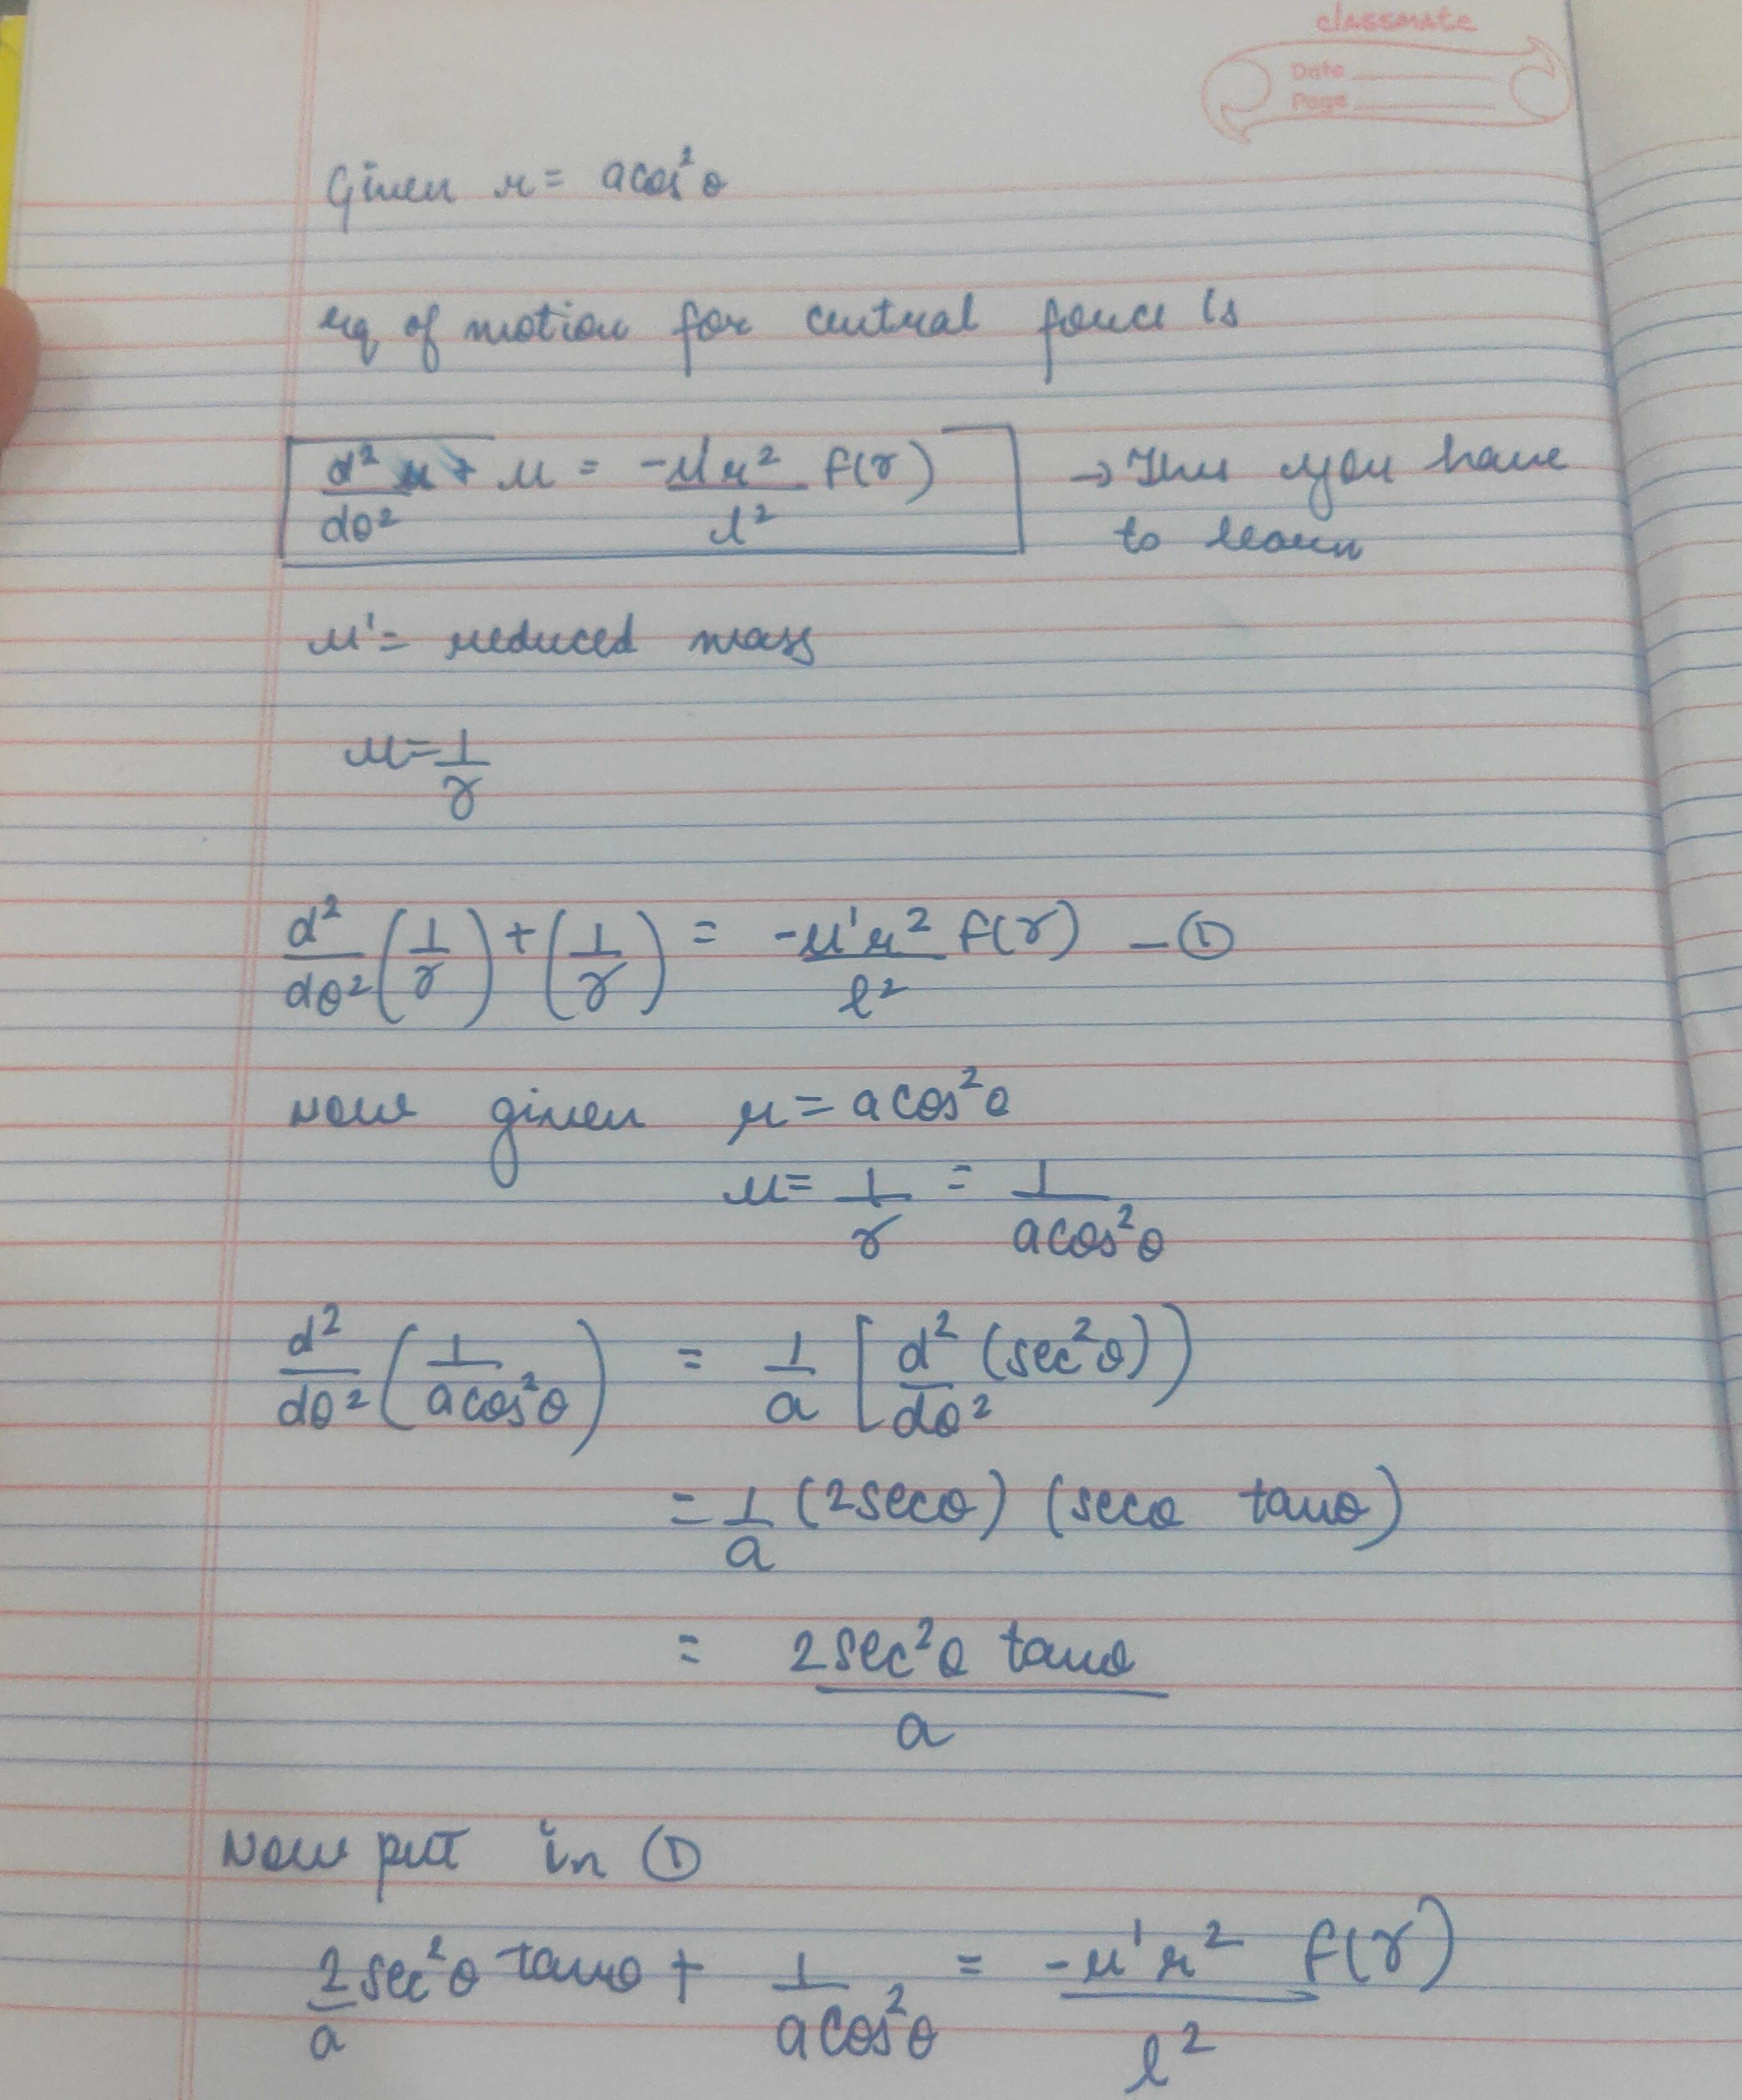 classmate
Date
Page
Given r = acos²θ
eq of motion for central force is
d²u/dθ² + u = -μ'r²/l² f(r) → This you have
to learn
μ' = reduced mass
u = 1/r
d²/dθ² (1/r) + (1/r) = -μ'r²/l² f(r) - ①
Now given r = acos²θ
u = 1/r = 1/acos²θ
d²/dθ² (1/acos²θ) = 1/a [d²/dθ² (sec²θ))
= 1/a (2secθ) (secθ tanθ)
= 2sec²θ tanθ/a
Now put in ①
2/a sec²θ tanθ + 1/acos²θ = -μ'r²/l² f(r)